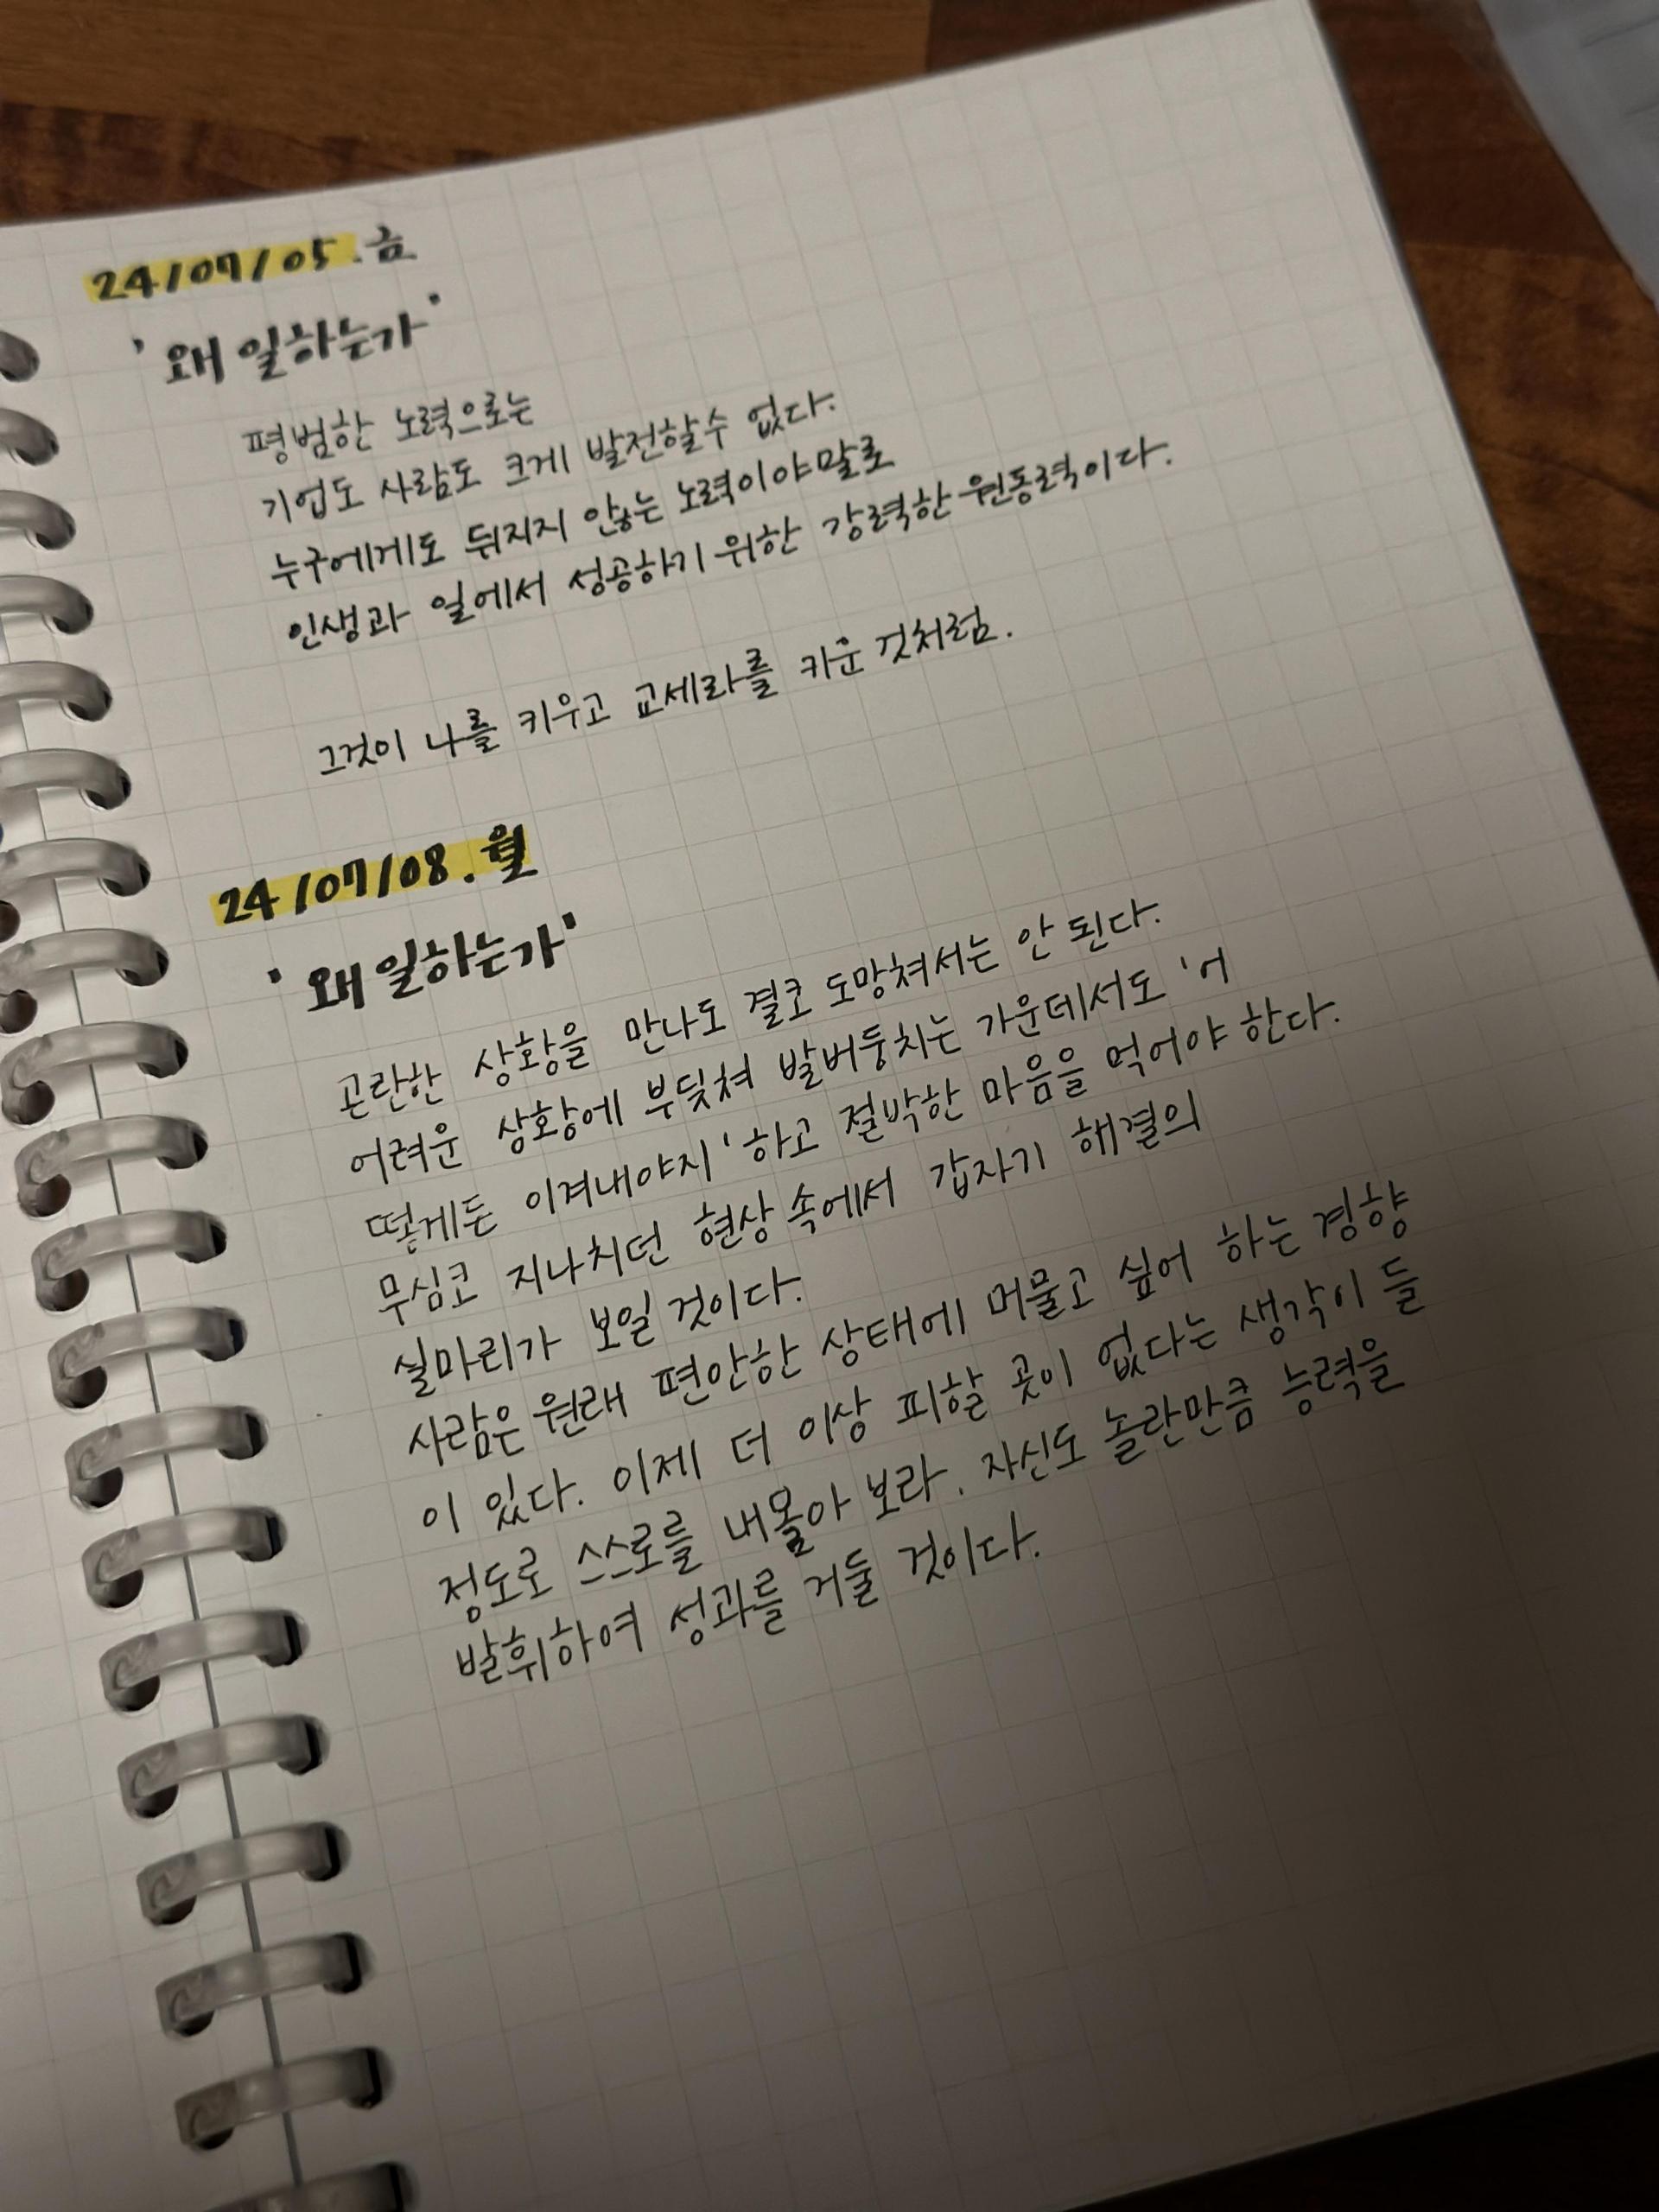 24/07/05.금
'왜 일하는가'
평범한 노력으로는
기업도 사람도 크게 발전할수 없다.
누구에게도 뒤지지 않는 노력이야말로
인생과 일에서 성공하기 위한 강력한 원동력이다.
그것이 나를 키우고 교세라를 키운 것처럼.
24/07/08.월
'왜 일하는가'
곤란한 상황을 만나도 결코 도망쳐서는 안 된다.
어려운 상황에 부딪쳐 발버둥치는 가운데서도 '어
떻게든 이겨내야지' 하고 절박한 마음을 먹어야 한다.
무심코 지나치던 현상 속에서 갑자기 해결의
실마리가 보일 것이다.
사람은 원래 편안한 상태에 머물고 싶어 하는 경향
이 있다. 이제 더 이상 피할 곳이 없다는 생각이 들
정도로 스스로를 내몰아 보라. 자신도 놀란만큼 능력을
발휘하여 성과를 거둘 것이다.